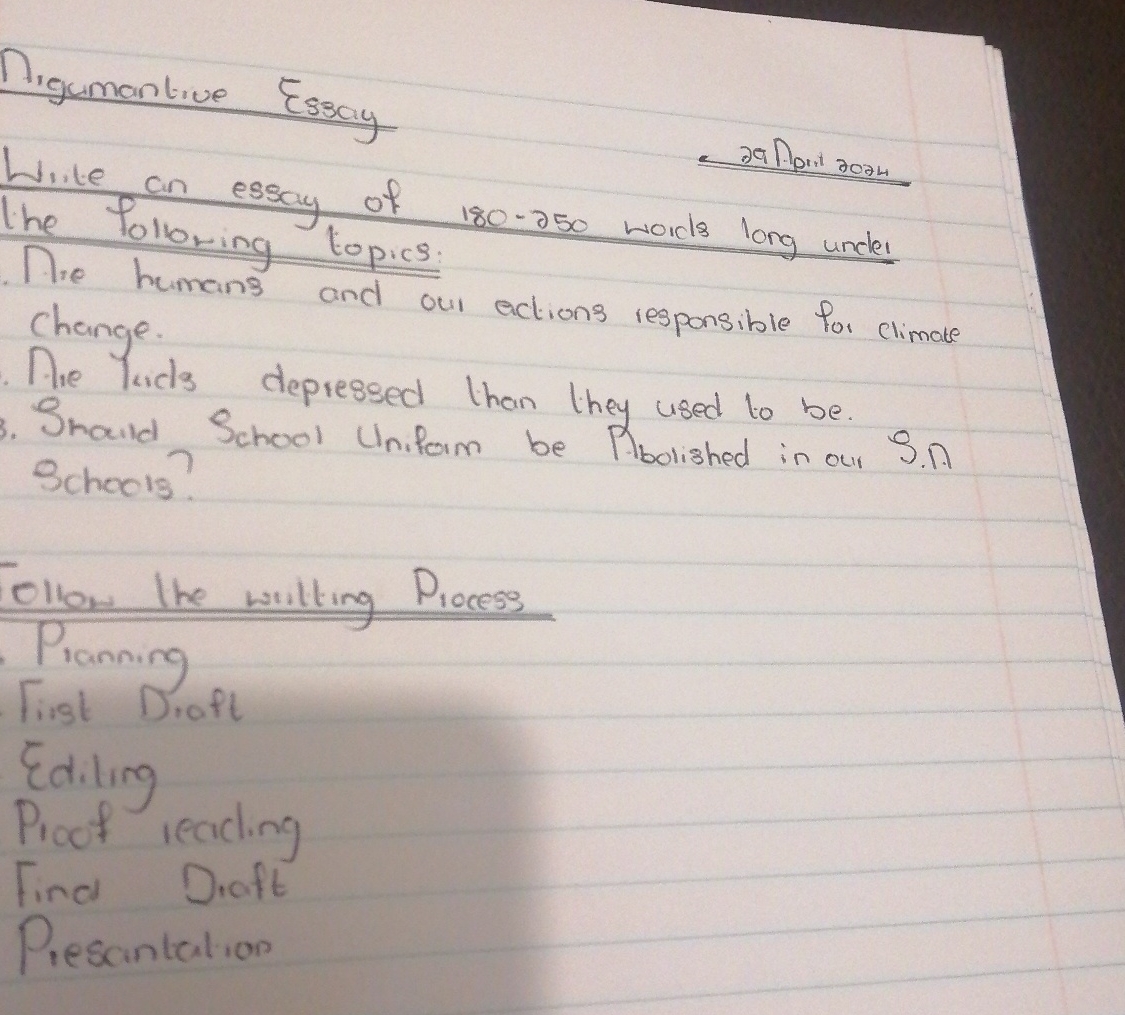 Argumantive Essay
29 April 2024
Write an essay of 180-250 words long under
the following topics:
. Are humans and our actions responsible for climate
change.
. Are kids depressed than they used to be.
3. Should School Uniform be Abolished in our S.A
Schools?
Follow the writting Process
. Planning
. First Draft
. Editing
Proof reading
Final Draft
Presantation